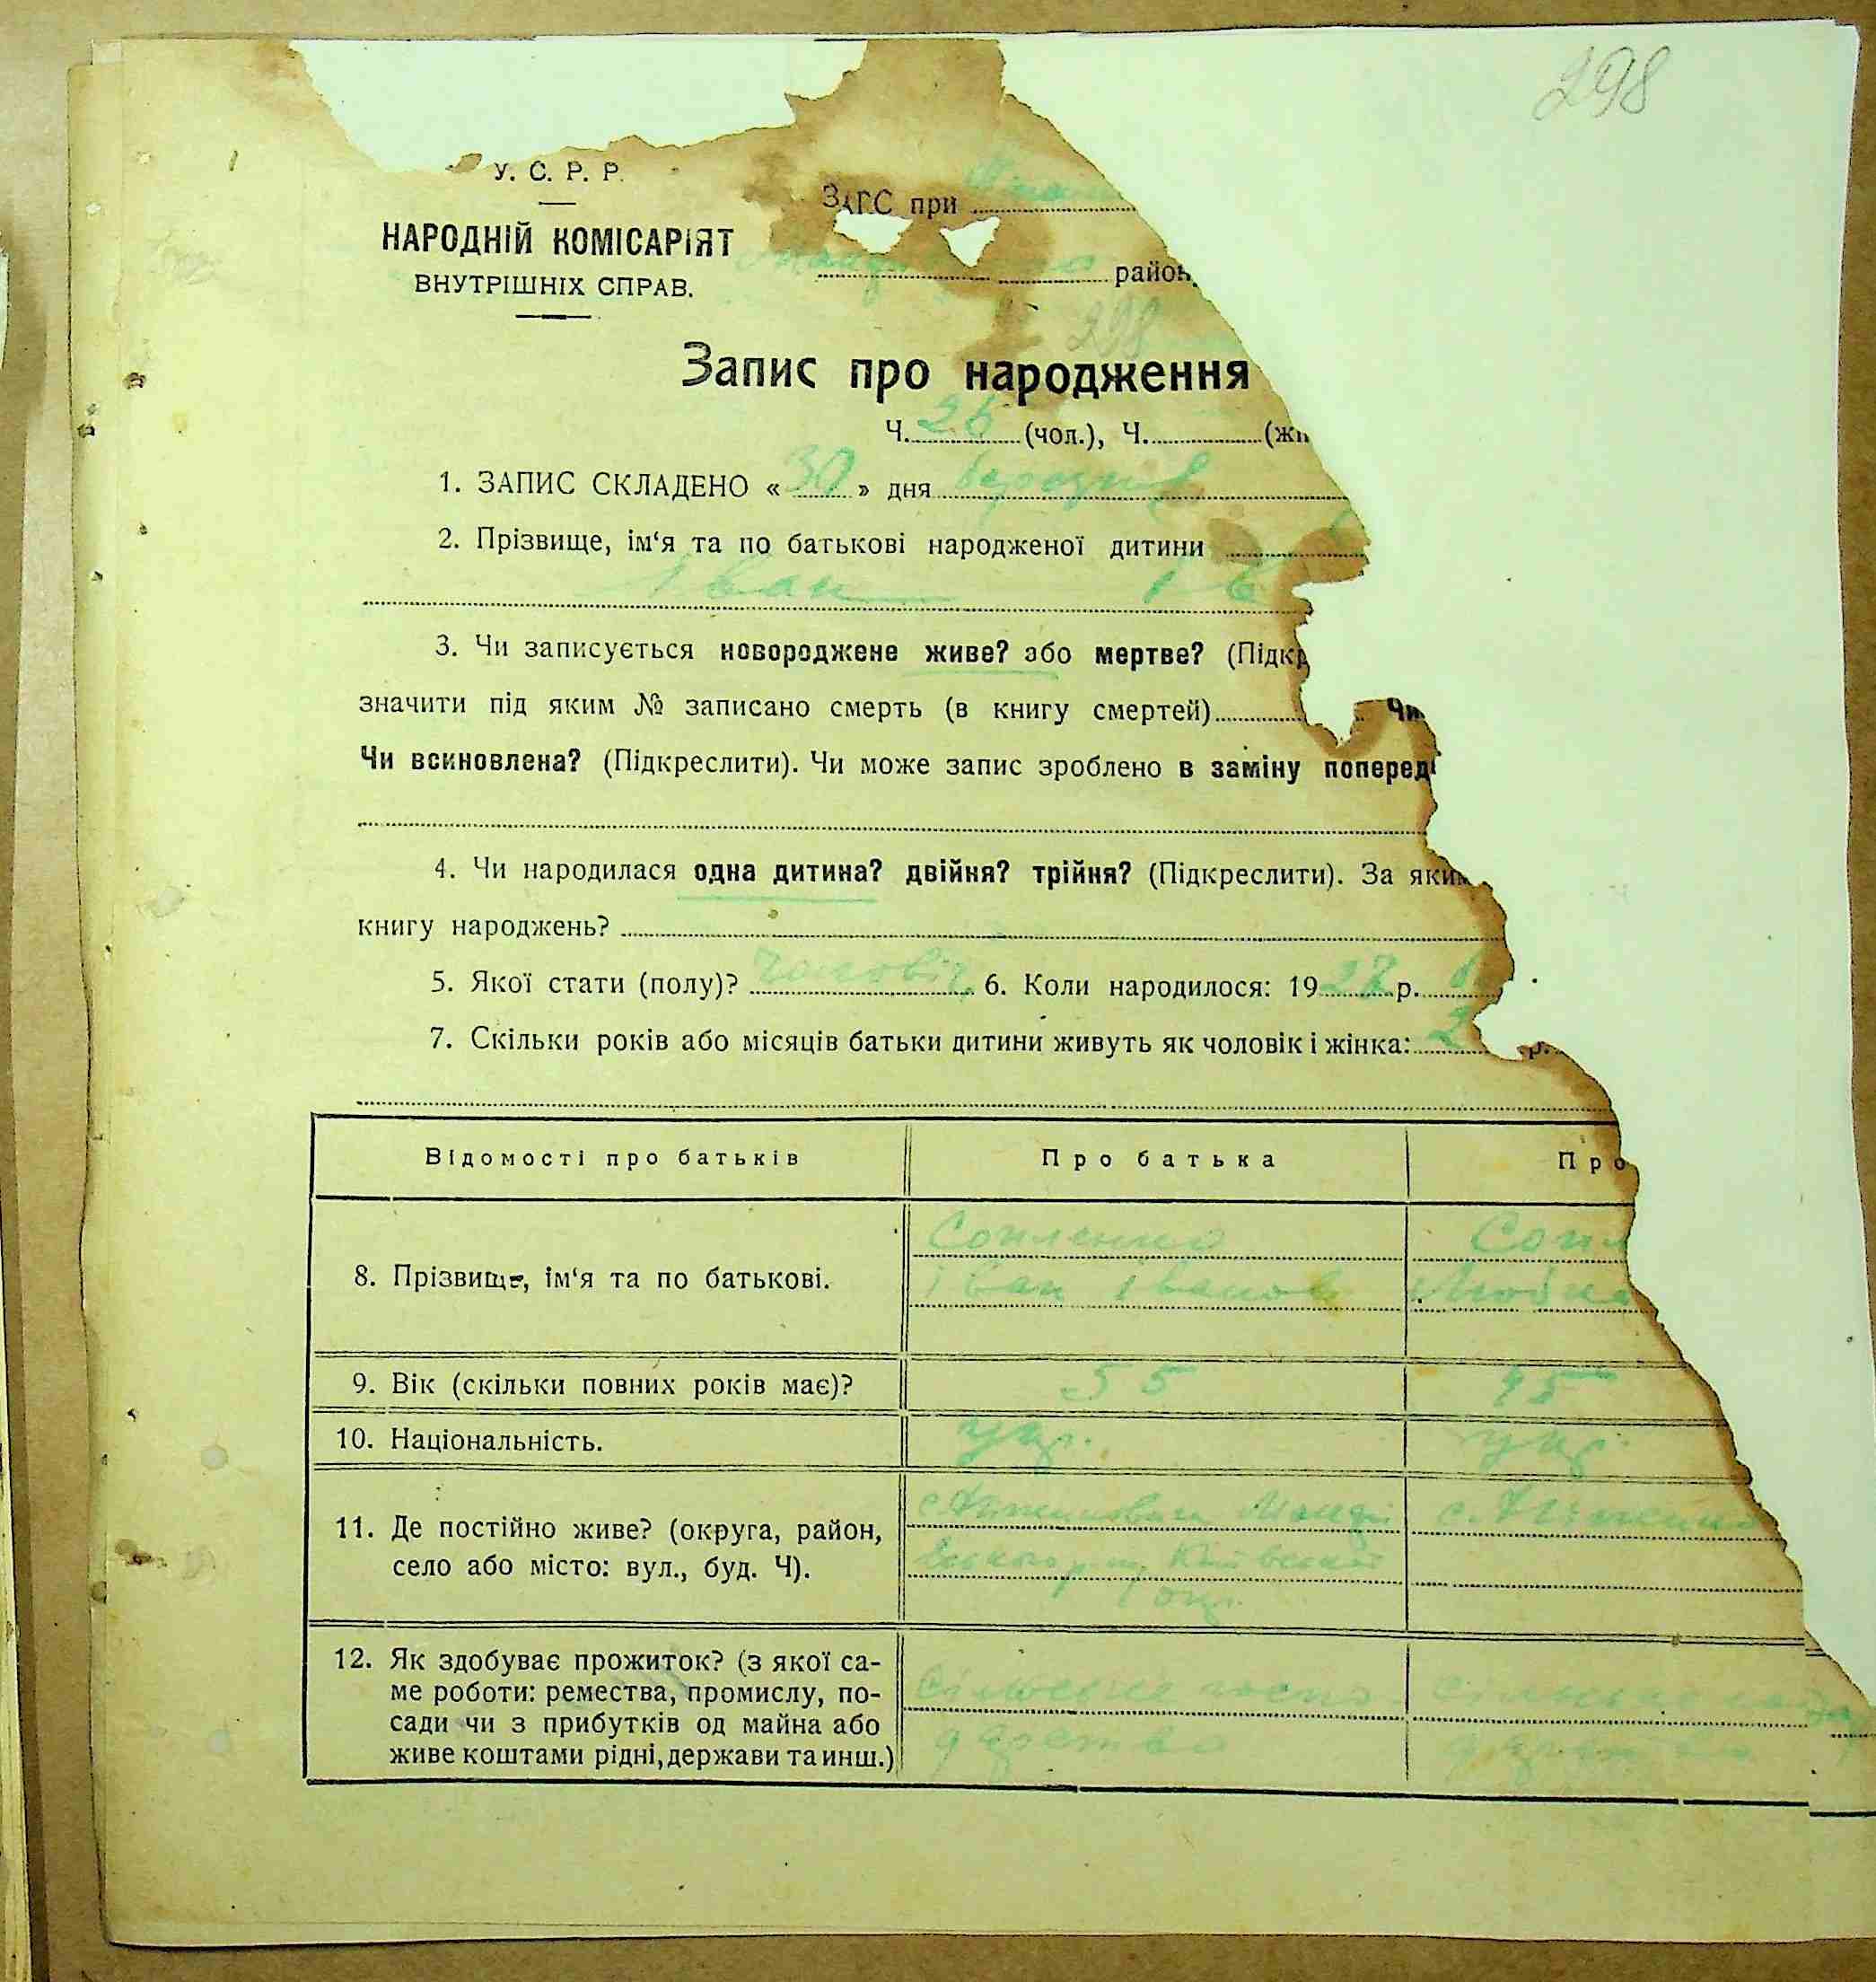 298
У. С. Р. Р.
ЗАГС при
НАРОДНІЙ КОМІСАРІЯТ
район
ВНУТРІШНІХ СПРАВ.
298
Запис про народження
Ч. 26 (чол.), Ч. (жі
1. ЗАПИС СКЛАДЕНО « 30 » дня березня
2. Прізвище, ім‘я та по батькові народженої дитини
Іван Ів
3. Чи записується новороджене живе? або мертве? (Підкр
значити під яким № записано смерть (в книгу смертей) Чи
Чи всиновлена? (Підкреслити). Чи може запис зроблено в заміну поперед
4. Чи народилася одна дитина? двійня? трійня? (Підкреслити). За яким
книгу народжень?
5. Якої стати (полу)? чоловіч. 6. Коли народилося: 19 27 р.
7. Скільки років або місяців батьки дитини живуть як чоловік і жінка: 2 р.
Відомості про батьків Про батька Про
8. Прізвище, ім‘я та по батькові.
Сопленко Сопл
Іван Іванов
9. Вік (скільки повних років має)? 55 45
10. Національність. укр. укр.
11. Де постійно живе? (округа, район,
село або місто: вул., буд. Ч).
Київської
окр.
12. Як здобуває прожиток? (з якої са-
ме роботи: ремества, промислу, по-
сади чи з прибутків од майна або
живе коштами рідні, держави та инш.)
сільське госпо- сільське госпо
дарство дарство